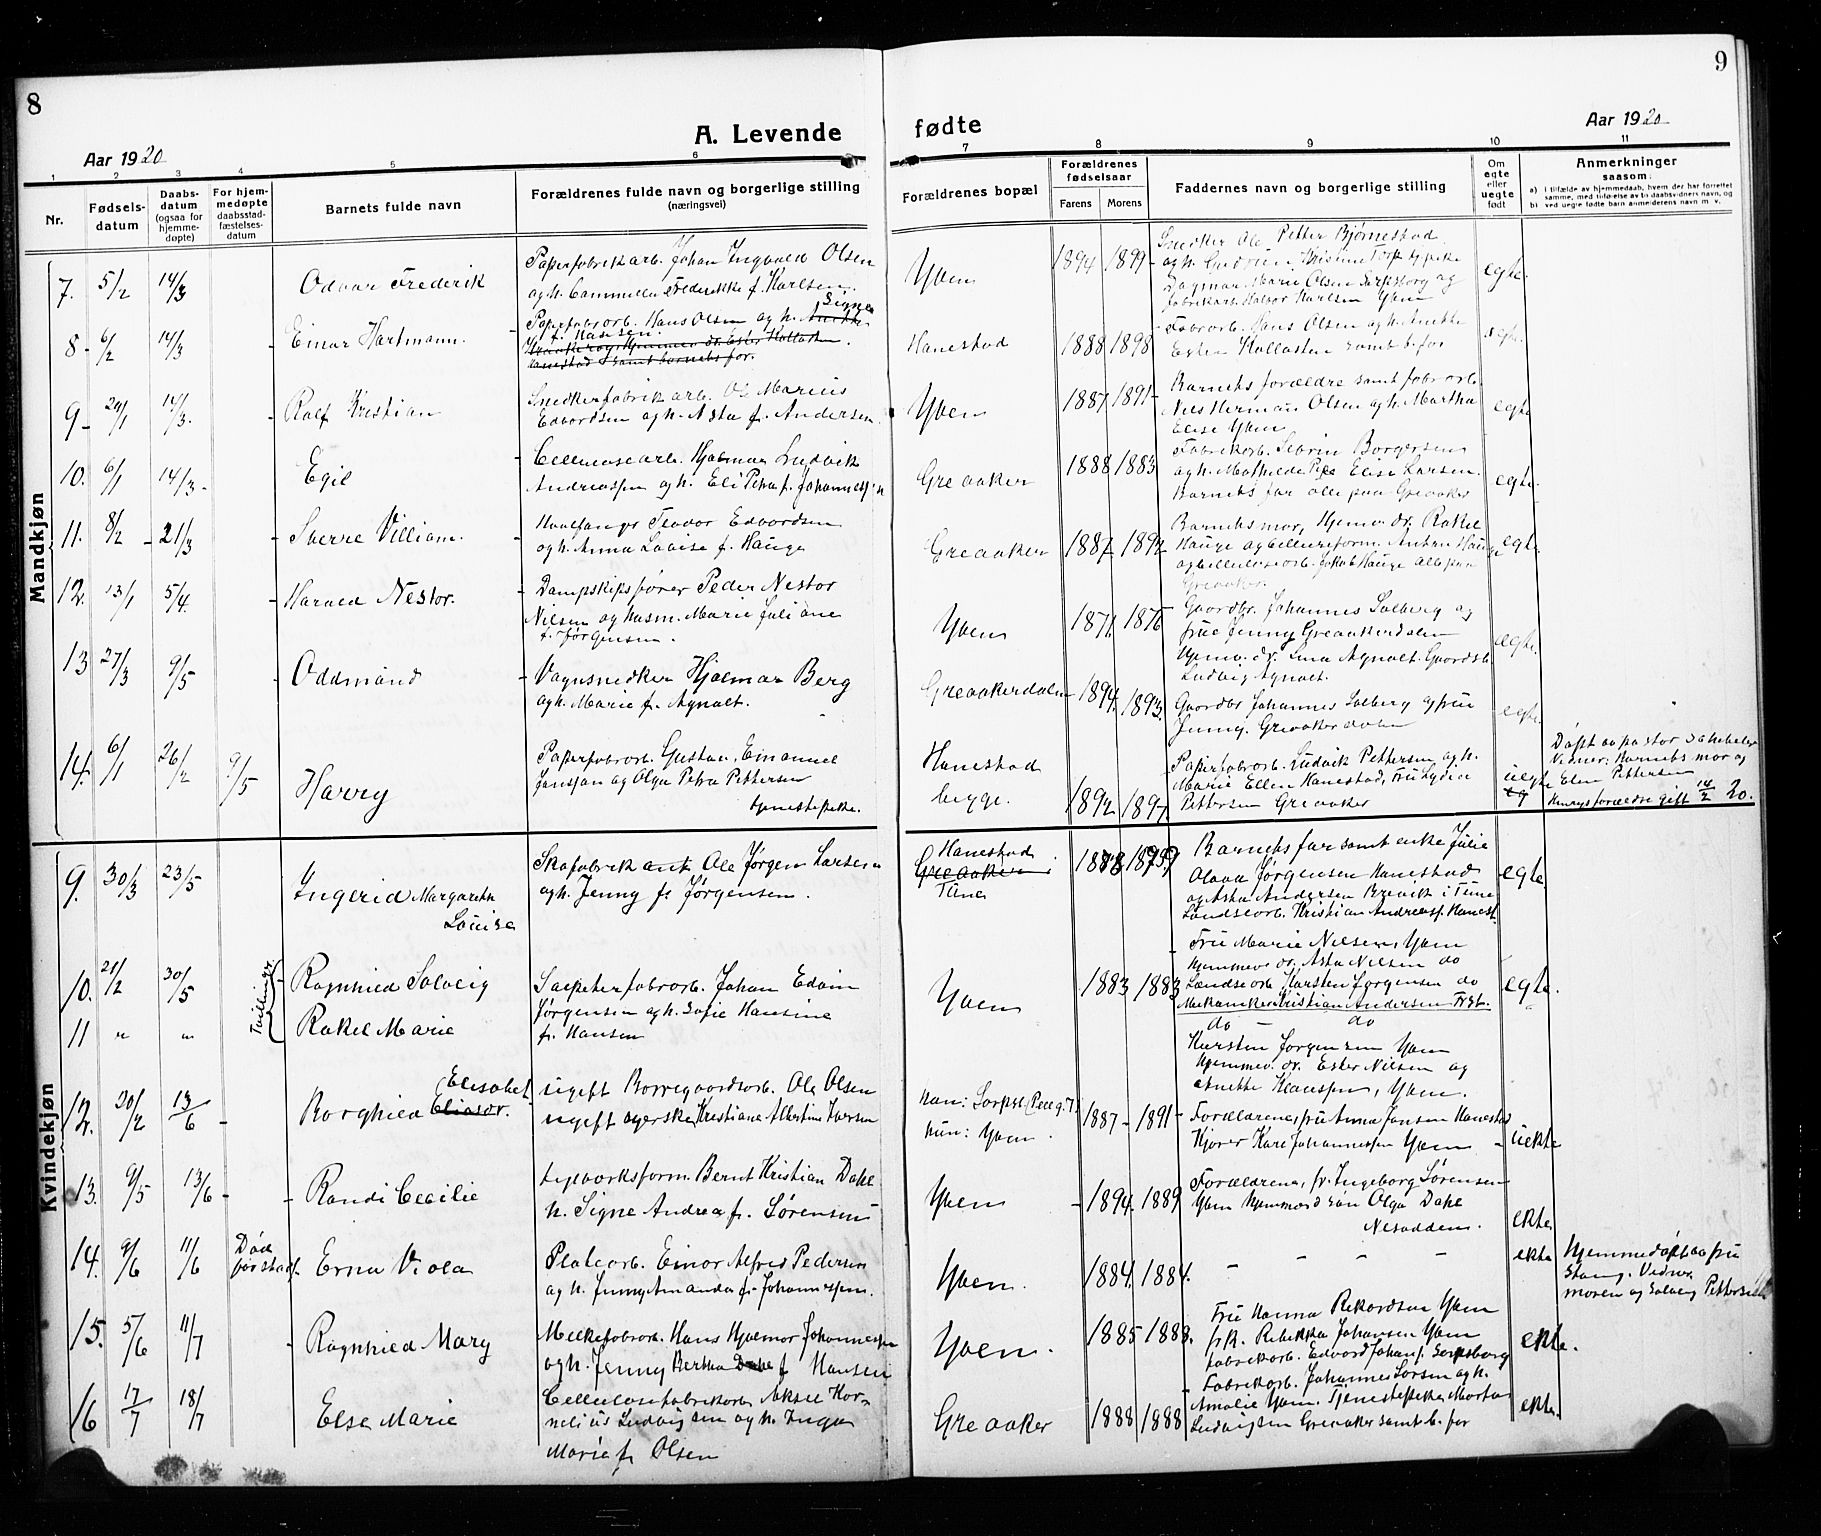 8
9
A. Levende fødte
Aar 1920
Aar 1920
1 2 3 4 5 6 7 8 9 10 11
Nr.
Fødsels-
datum
Daabs-
datum
(ogsaa for
hjemme-
døpte)
For hjem-
medøpte
daabsstad-
fæstelses-
datum
Barnets fulde navn
Forældrenes fulde navn og borgerlige stilling
(næringsvei)
Forældrenes bopæl
Forældrenes
fødselsaar
Farens
Morens
Faddernes navn og borgerlige stilling
Om
egte
eller
uegte
født
Anmerkninger
saasom:
a) i tilfælde av hjemmedaab, hvem der har forrettet
samme, med tilføielse av to daabsvidners navn, og
b) ved uegte fødte barn anmelderens navn m. v.
Mandkjøn
7. 5/2 14/3 Odvar Frederik
Papirfabrikarb. Johan Ingvald Olsen
og h. Cammilla Frederikke f. Karlsen.
Yven 1894 1899
Snedker Ole Petter Bjørnestad
Dagmar Marie Olsen Sarpsborg og
fabrikarb. Halvor Karlsen Yven
egte
8 - 6/2 14/3 Einar Hartmann.
Papirfabrarb. Hans Olsen og h. Signe
f. Hansen.
Hanestad 1888 1898
Fabrarb. Hans Olsen og h. Anette
samt b. far
egte
9 - 29/1 14/3. Rolf Kristian
Snedkerfabrikarb. Ole Marius
Edvardsen og h. Asta f. Andersen
Yven 1887 1891
Barnets forældre samt fabrarb.
Nils Herman Olsen og h. Martha
Elise Yven
egte
10. 6/1 14/3 - Egil
Cellulosearb. Hjalmar Ludvik
Andreassen og h. Eli Petra f. Johannessen
Greaaker 1888 1883
Fabrikarb. Severin Borgersen
og h. Mathilde Elise Larsen.
Barnets far alle paa Greaaker
egte.
11. 8/2 - 21/3 - Sverre Villiam.
Hvalfanger Teodor Edvardsen
og h. Anna Lovise f. Hauge
Greaaker 1887 1892
Barnets mor, Hjemv. dr. Rakel
Hauge og celluloseform. Anton Hauge
og cellulosearb. Jakob Hauge alle paa
Greaaker.
egte
12. 13/1 5/4 - Harald Nestor.
Dampskipsfører Peder Nestor
Nilsen og husm. Marie Juliane
f. Jørgensen.
Yven 1871. 1876
Gaardbr. Johannes Solberg og
frue Jenny Greaakerdalen
Hjemv. dr. Lina Agnalt. Gaardb.
Ludvig Agnalt.
egte.
13 27/3 9/5 - Oddmund
Vognsnedker Hjalmar Berg
og h. Marie f. Agnalt.
Greaakerdalen 1894. 1893.
Gaardbr Johannes Solberg og frue
Jenny. Greaakerdalen
egte
14. 6/1 26/2 9/5 Harry
Papirfabrarb. Gustav Emanuel
Jansson og Olga Petra Pettersen
tjenestepike.
Hanestad
bygge. 1892 1897
Papirfabrarb. Ludvik Pettersen og h.
Marie Ellen Hanestad, Fru Lydia
Pettersen Greaaker
uegte
Døpt av pastor
Vidner: Barnets mor og
Ellen Pettersen
forældre gift 14/2 20.
Kvindekjøn
9. 30/3 23/5 Ingerid Margarethe
Louise
Skofabrikant Ole Jørgen Larsen
og h. Jenny f. Jørgensen.
Hanestad
Greaaker
Tune
Barnets far samt enke Julie
Olava Jørgensen Hanestad
og Asta Andersen Brevik i Tune
Landsearb. Kristian Andreass. Hanest.
egte.
10. 21/2 30/5 Ragnhild Solveig
11 " " Rakel Marie
Tvillinger
Salpeterfabrarb. Johan Edvin
Jørgensen og h. Sofie Hansine
f. Hansen
Yven 1883 1883
Fru Marie Nilsen, Yven
Hjemmev. dr. Asta Nilsen do
Karsten Jørgensen do
Mekaniker Kristian Andersen
do - do
Karsten Jørgensen Yven
Hjemmev. dr. Ester Nilsen og
Anette Klaussen, Yven.
egte.
"
12. 20/2 13/6 - Borghild Elisabet
ugift Borregaardsarb. Ole Olsen
ugift Kristiane Albertine Iversen
han: Sarpsb.
hun: Yven. 1887 - 1891 -
Forældrene, fru Anna Jansen Hanestad
Kjører Kare Johannessen Yven
- uekte
13. 9/5 13/6 - Randi Cecilie
Bernt Kristian Dahl
h. Signe Andrea f. Sørensen
Yven - 1894. 1889
Forældrene, fr. Ingeborg Sørensen
Yven Olga Dahl
Nesodden.
ekte.
14. 9/6 11/6 Død
før stadf. Erna Viola
Platearb. Einar Alfred Pedersen
og h. Jenny Amanda f. Johannessen.
Yven. 1884. 1884. - - - -
ekte
Hjemmedøpt av fru
Stang. Vidner
moren og Solveig Pettersen
15. 5/6 11/7 - Ragnhild Mary
Melkefabrarb. Hans Hjalmar Johannessen
og h. Jenny Bertha f Hansen
Yven. 1885 1888.
Fru Hanna Rikardsen Yven
frk. Rebekka Johansen Yven
fabrikarb. Edvard Johans. Sarpsborg
ekte.
16 17/7 18/7 Else Marie
Cellulosefabrikarb. Aksel Kor-
nelius Ludvigsen og h. Inga
Marie f. Olsen
Greaaker 1888 1888
Fabrikarb. Johannes Larsen og h.
Amalie Yven. Tjenestepike Marta
Ludvigsen Greaaker samt b. far
ekte.